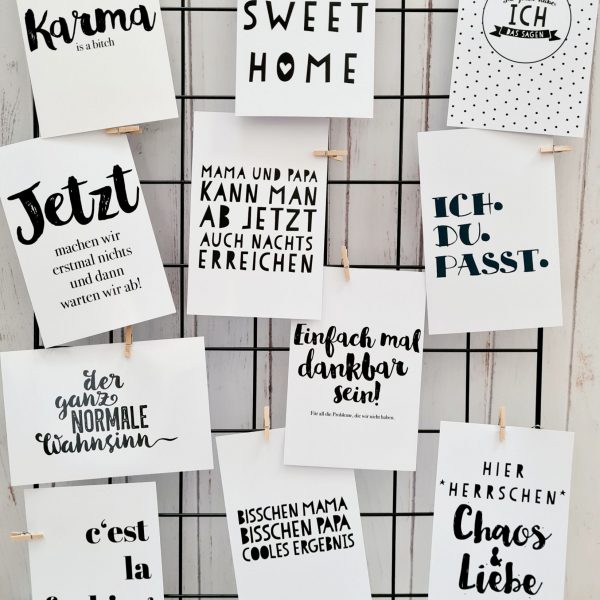 Karma
is a bitch
SWEET
HOME
ICH
DAS SAGEN
Jetzt
machen wir
erstmal nichts
und dann
warten wir ab!
MAMA UND PAPA
KANN MAN
AB JETZT
AUCH NACHTS
ERREICHEN
ICH.
DU.
PASST.
Einfach mal
dankbar
sein!
Für all die Probleme, die wir nicht haben.
der
ganz
NORMALE
Wahnsinn
BISSCHEN MAMA
BISSCHEN PAPA
COOLES ERGEBNIS
HIER
*HERRSCHEN*
Chaos
&
Liebe
c'est
la